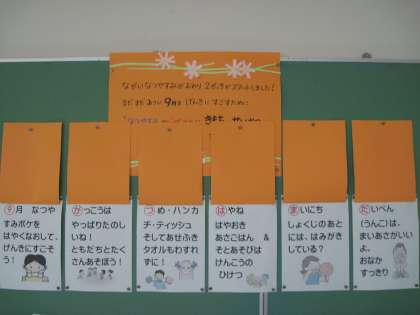 ながいなつやすみがおわり2がっきがスタートしました！
まだまだあつい9月を げんきにすごすために
9月 なつや
すみボケを
はやくなおして、
げんきにすごそ
う！
がっこうは
やっぱりたのし
いね！
ともだちとたく
さんあそぼう！
つめ・ハンカ
チ・ティッシュ
そしてあせふき
タオルもわすれ
ずに！
はやね
はやおき
あさごはん ＆
そとあそびは
けんこうの
ひけつ
まいにち
しょくじのあと
には、はみがき
している？
だいべん
(うんこ)は、
まいあさがいい
よ。
おなか
すっきり